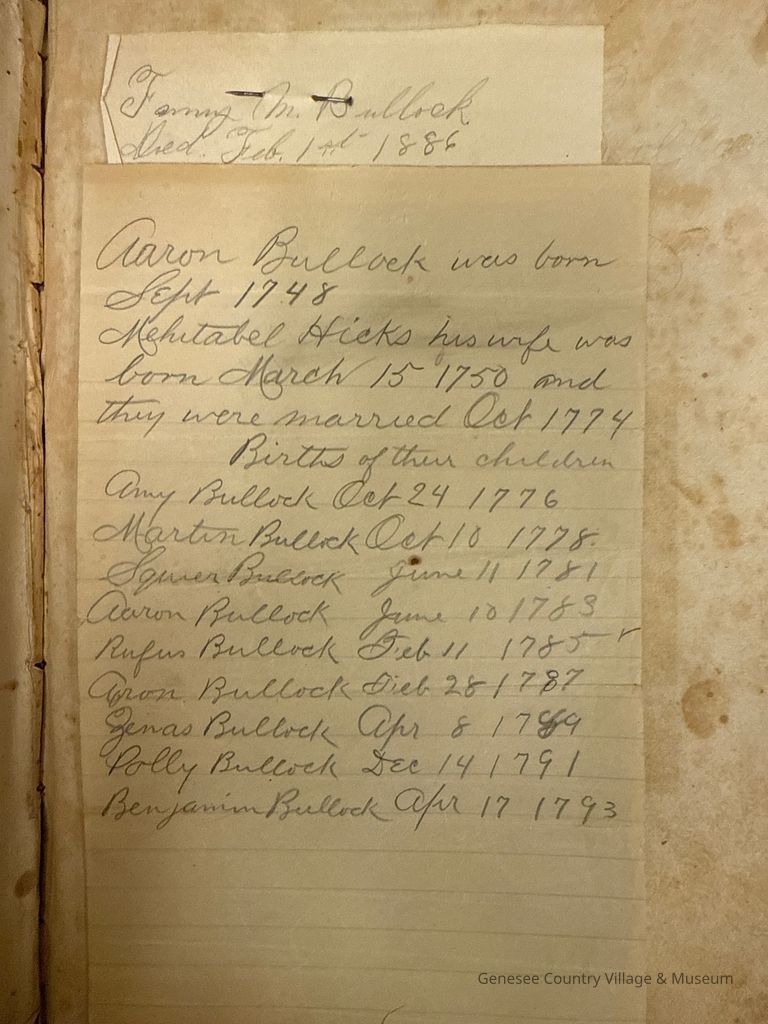 Fanny M. Bullock
Died. Feb. 1st 1886
Aaron Bullock was born
Sept 1748
Mehitabel Hicks his wife was
born March 15 1750 and
they were married Oct 1774
Births of their children
Amy Bullock Oct 24 1776
Martin Bullock Oct 10 1778.
Squier Bullock June 11 1781
Aaron Bullock June 10 1783
Rufus Bullock Feb 11 1785
Aron Bullock Feb 28 1787
Zenas Bullock Apr 8 1789
Polly Bullock Dec 14 1791
Benjamin Bullock Apr 17 1793
Genesee Country Village & Museum